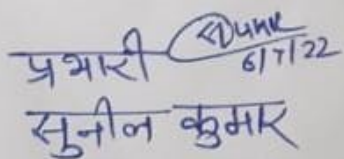 प्रभारी
6/7/22
सुनील कुमार